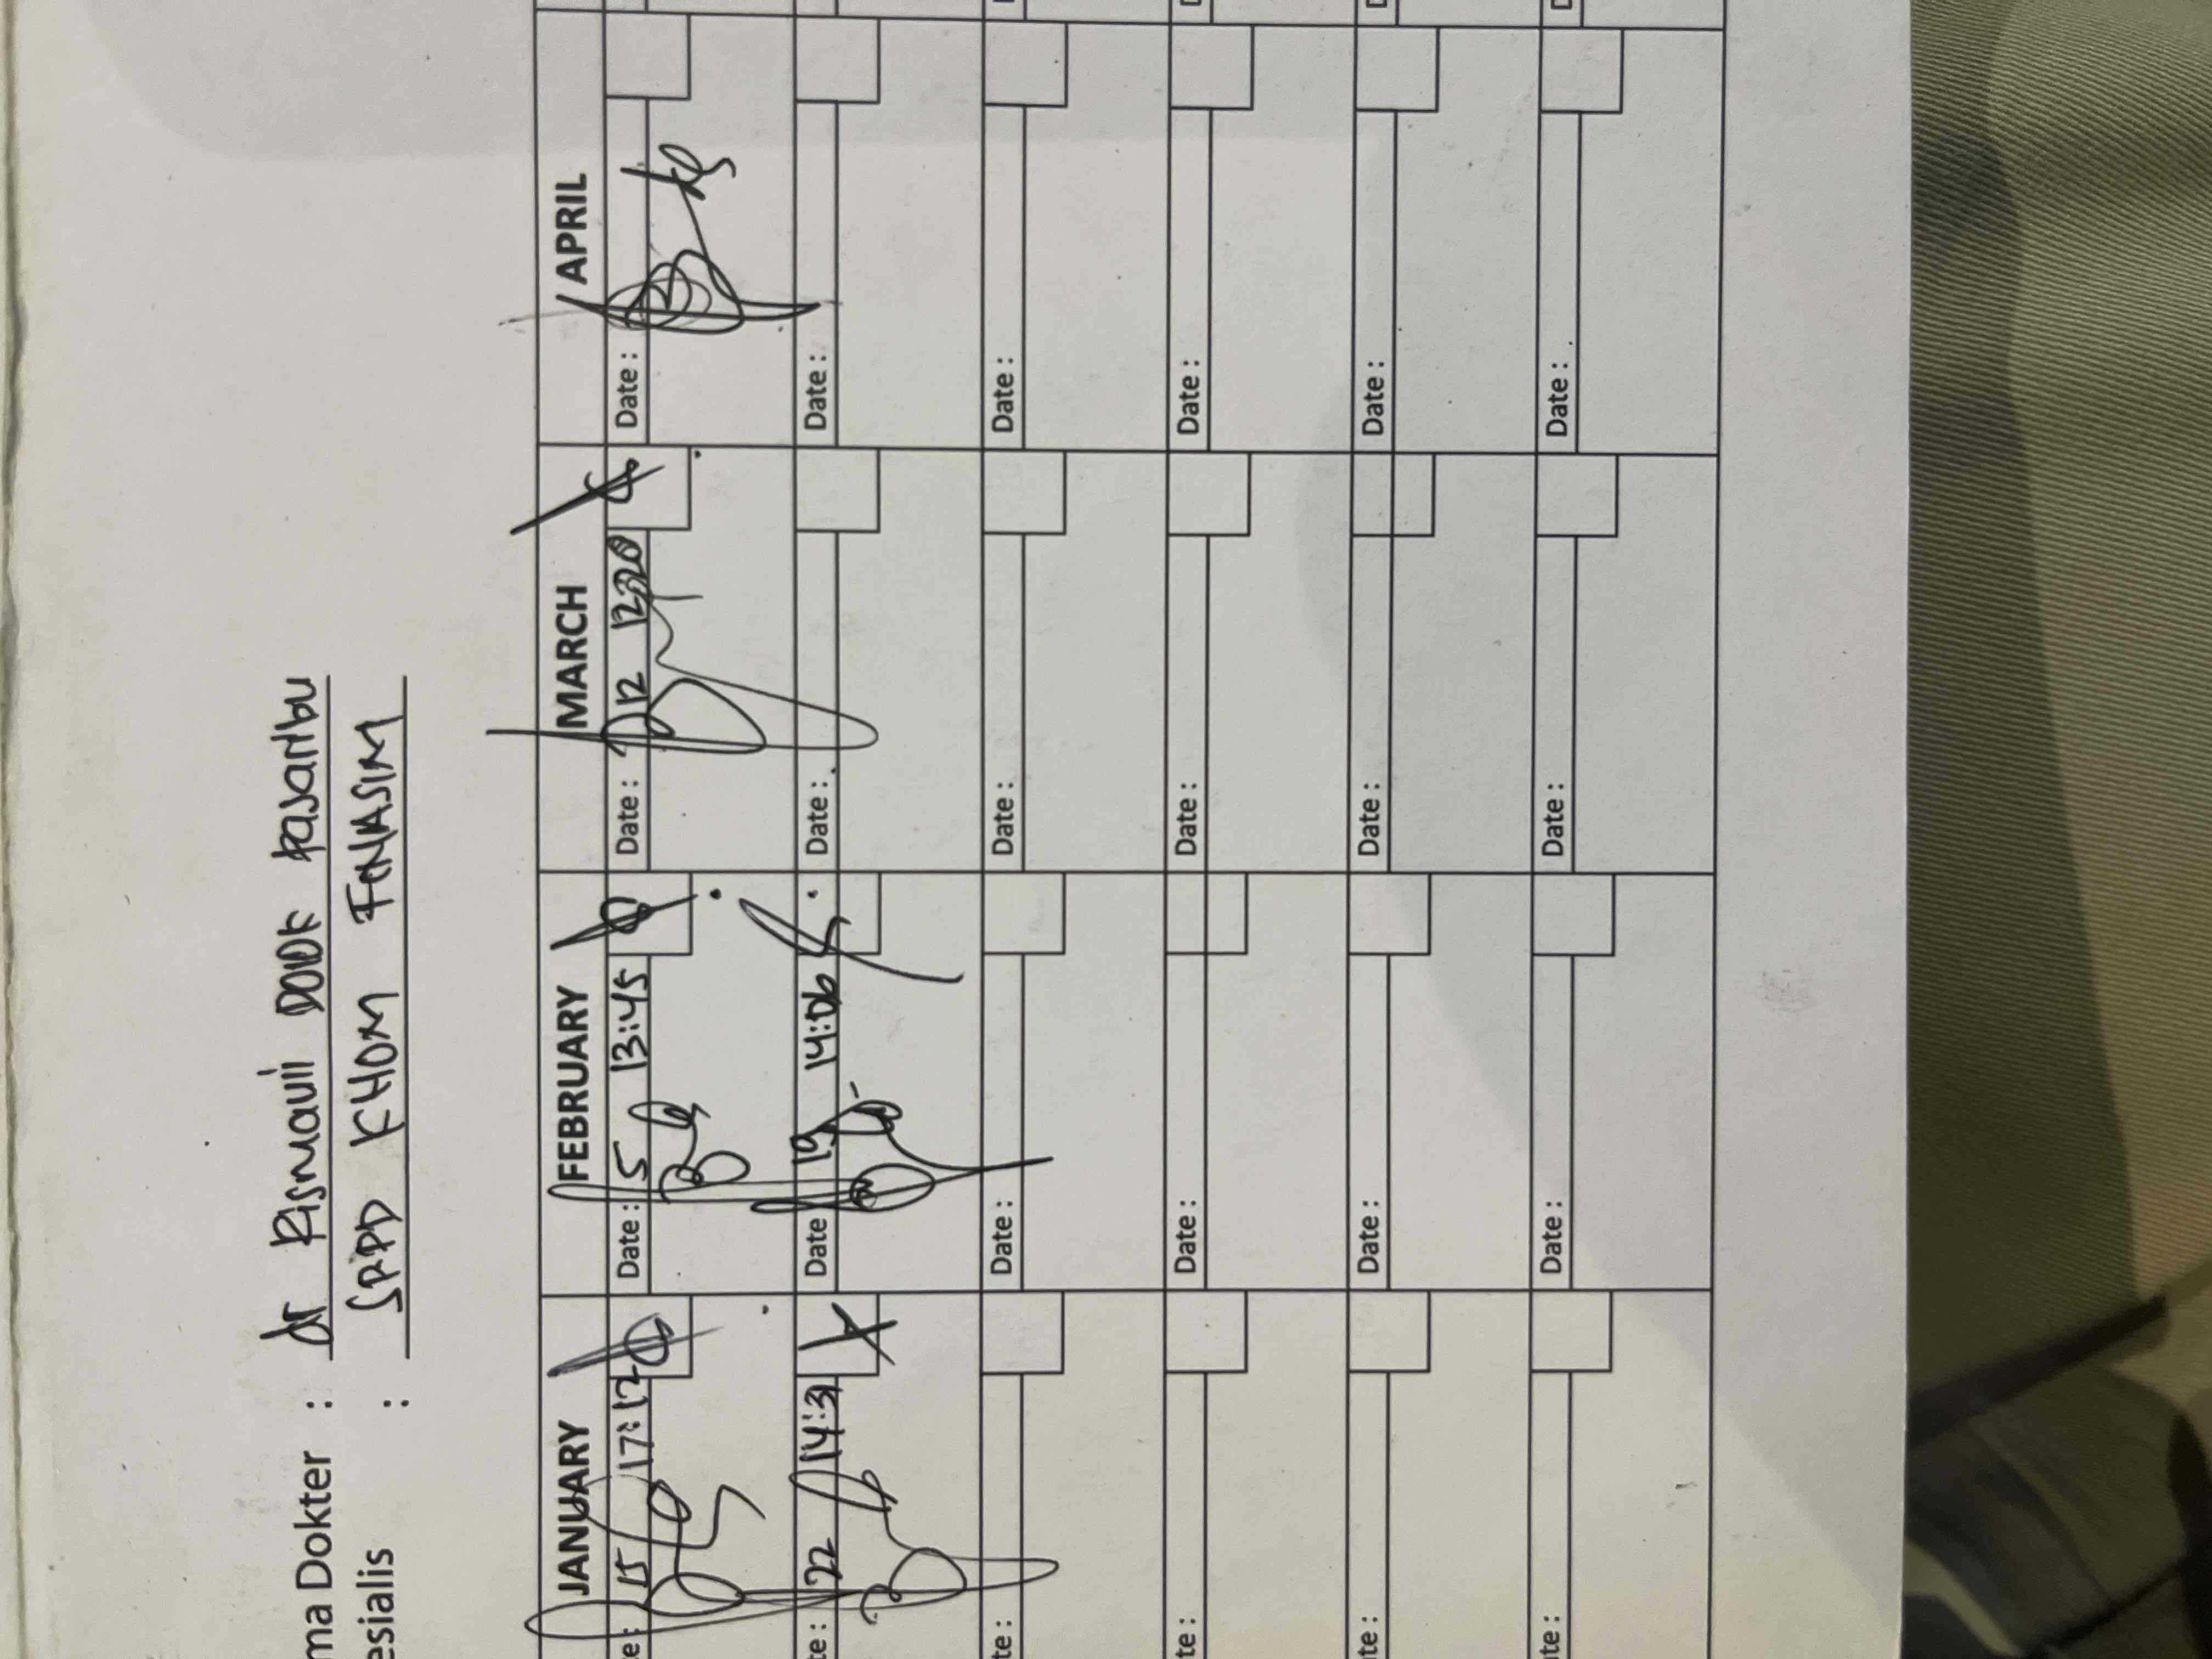 ma Dokter : dr Risnawii Dodk pasaribu
esialis : SPPD KHOM FINASIM
JANUARY FEBRUARY MARCH APRIL
te: 15 17:12 Date: 5 13:45 Date: 12 Date:
te: 22 14:31 Date 19 14:06 Date: Date:
te: Date: Date: Date:
te: Date: Date: Date:
te: Date: Date: Date:
te: Date: Date: Date: